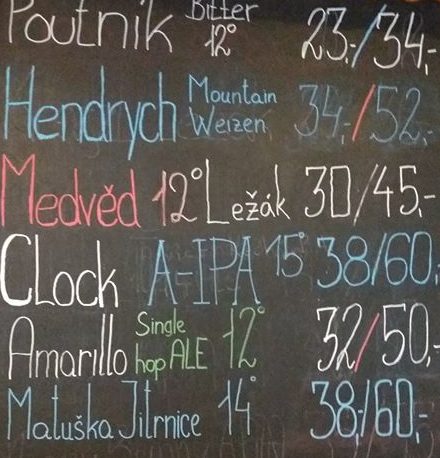 Poutník Bitter 12° 23,-/34,-
Hendrych Mountain Weizen 34,-/52,-
Medvěd 12° Ležák 30/45,-
Clock A-IPA 15° 38/60,-
Amarillo Single hop ALE 12° 32/50,-
Matuška Jitrnice 14° 38,-/60,-